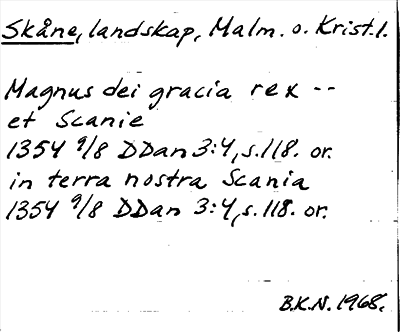 Skåne, landskap, Malm. o. Krist. l.
Magnus dei gracia rex --
et Scanie
1354 9/8 DDan 3:4, s. 118. or.
in terra nostra Scania
1354 9/8 DDan 3:4, s. 118. or.
B.K.N. 1968.